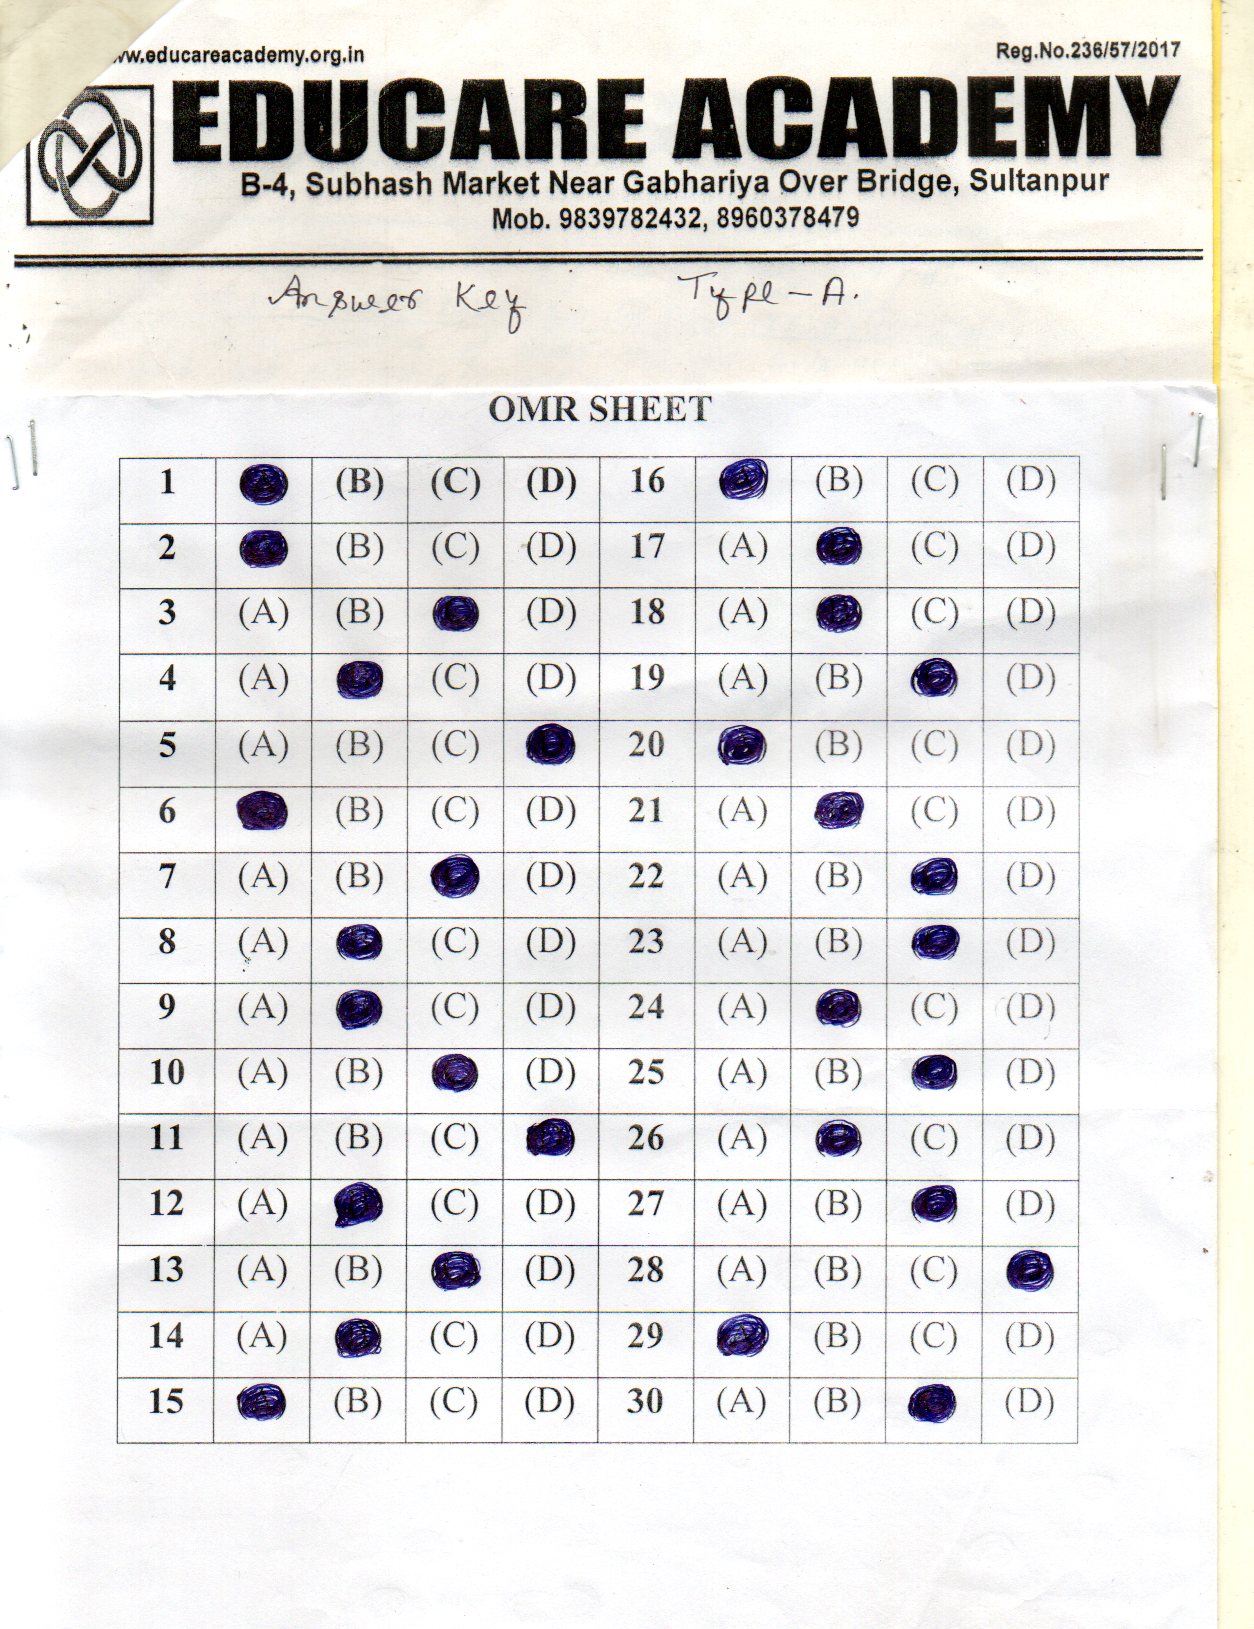 ww.educareacademy.org.in Reg.No.236/57/2017
EDUCARE ACADEMY
B-4, Subhash Market Near Gabhariya Over Bridge, Sultanpur
Mob. 9839782432, 8960378479
Answer Key Type-A.
OMR SHEET
1 (B) (C) (D) 16 (B) (C) (D)
2 (B) (C) (D) 17 (A) (C) (D)
3 (A) (B) (D) 18 (A) (C) (D)
4 (A) (C) (D) 19 (A) (B) (D)
5 (A) (B) (C) 20 (B) (C) (D)
6 (B) (C) (D) 21 (A) (C) (D)
7 (A) (B) (D) 22 (A) (B) (D)
8 (A) (C) (D) 23 (A) (B) (D)
9 (A) (C) (D) 24 (A) (C) (D)
10 (A) (B) (D) 25 (A) (B) (D)
11 (A) (B) (C) 26 (A) (C) (D)
12 (A) (C) (D) 27 (A) (B) (D)
13 (A) (B) (D) 28 (A) (B) (C)
14 (A) (C) (D) 29 (B) (C) (D)
15 (B) (C) (D) 30 (A) (B) (D)